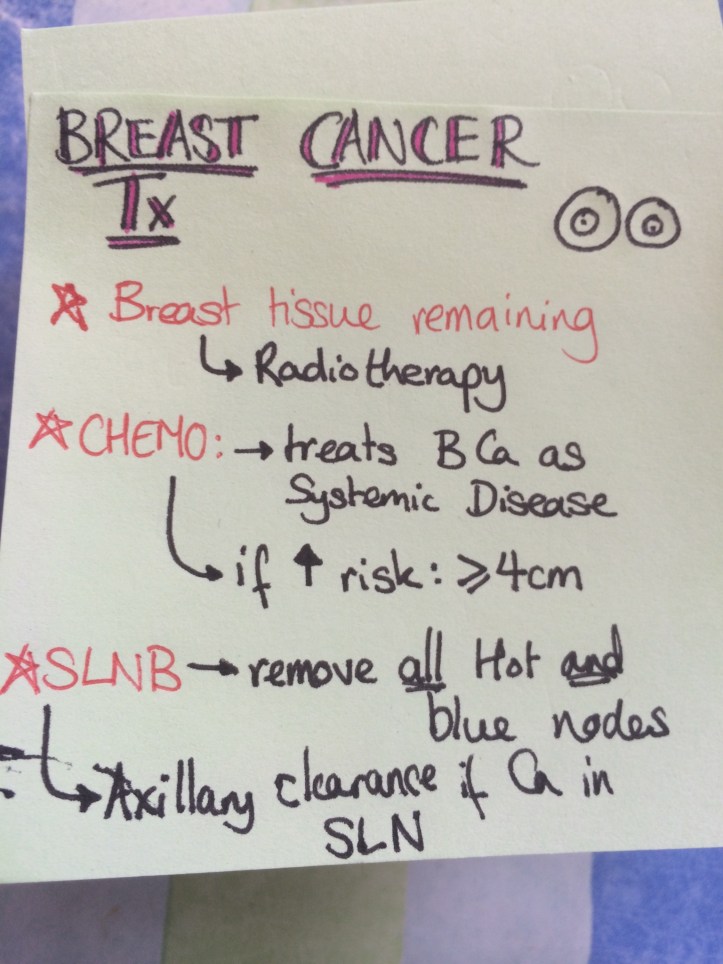 BREAST CANCER
Tx
☆ Breast tissue remaining
↳ Radiotherapy
☆ CHEMO: → treats BCa as
Systemic Disease
↳ if ↑ risk: ≥4cm
☆ SLNB → remove all Hot and
blue nodes
↳ Axillary clearance if Ca in
SLN